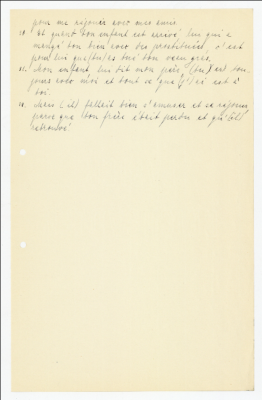 pour me réjouir avec mes amis.
Et quand ton enfant est arrivé, lui qui a
mangé ton bien avec des prostituées, c'est
pour lui que (tu) as tué ton veau gras.
Mon enfant lui dit mon père, (tu) es tou-
jours avec moi et tout ce que (j') ai est à
toi.
Mais (il) fallait bien s'amuser et se réjouir
parce que ton frère était perdu et qu'(il)
retrouvé